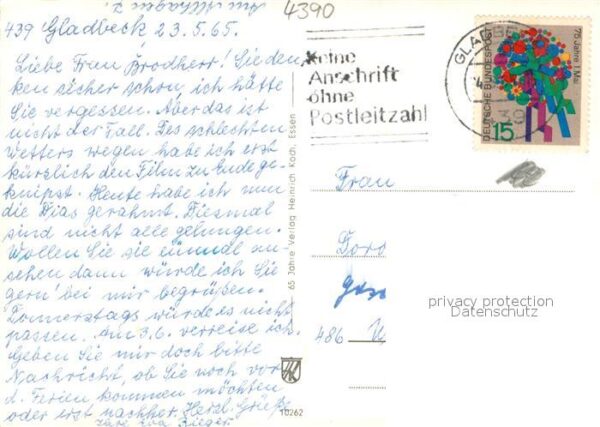 4390
439 Gladbeck 23.5.65.
Liebe Frau Brodherr! Sie den-
ken sicher schon, ich hätte
Sie vergessen. Aber das ist
nicht der Fall. Des schlechten
Wetters wegen habe ich erst
kürzlich den Film zu Ende ge-
knipst. Heute habe ich nun
die Dias gerahmt. Diesmal
sind nicht alle gelungen.
Wollen Sie sie einmal an-
sehen dann würde ich Sie
gern bei mir begrüßen.
Donnerstags würde es nicht
passen. Am 3.6. verreise ich.
Geben Sie mir doch bitte
Nachricht, ob Sie noch vor
d. Ferien kommen möchten
oder erst nachher. Herzl. Grüße
Ihre Eva Rieger
65 Jahre Verlag Heinrich Koch, Essen
10262
Keine
Anschrift
ohne
Postleitzahl
GLADBE
39
DEUTSCHE BUNDESPOST
75 Jahre 1. Mai
15
Frau
Doro
486
privacy protection
Datenschutz